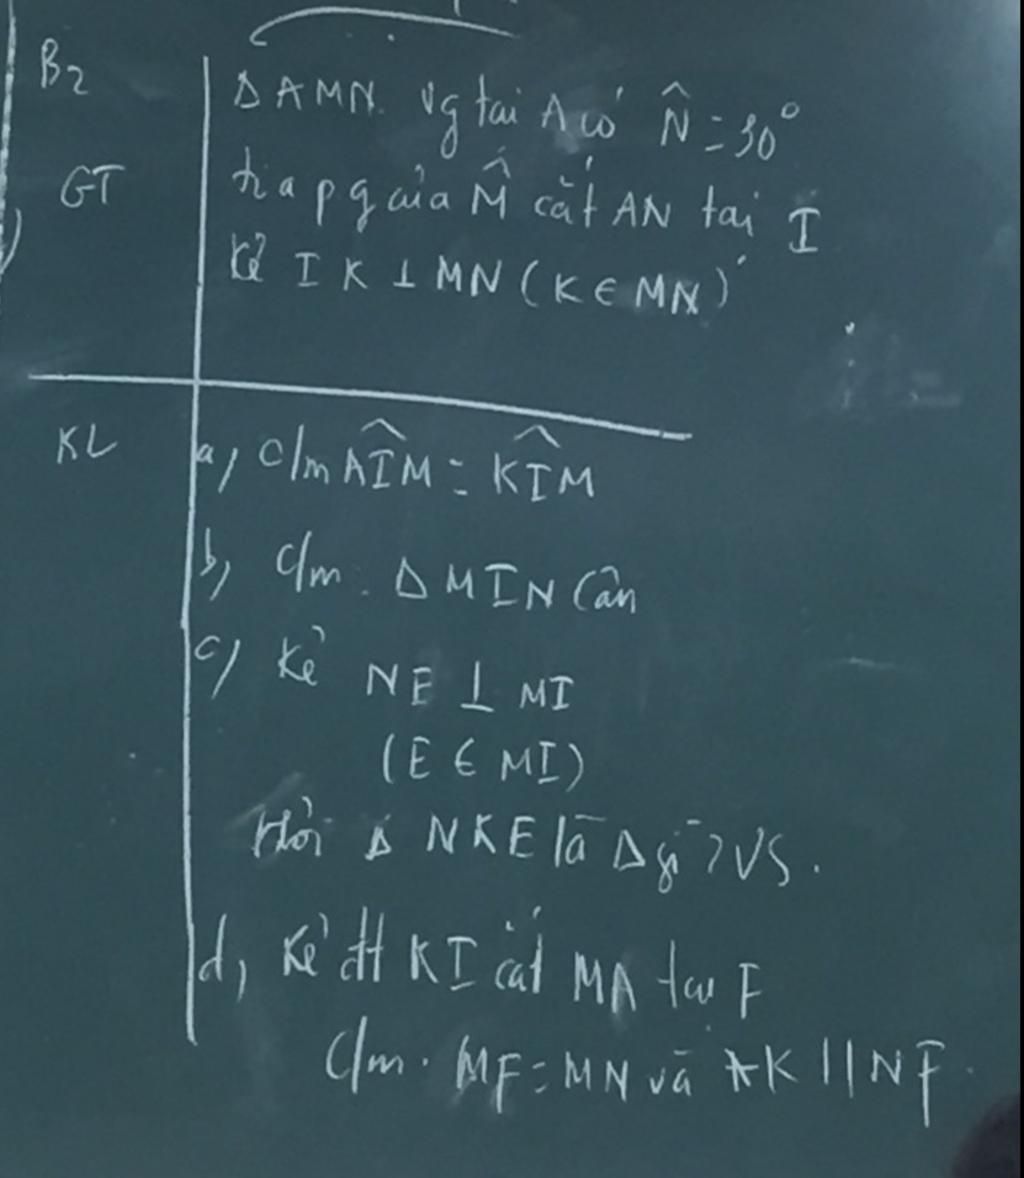 B2
Δ AMN. vg tại A có N̂ = 30°
GT
tia pg của M̂ cắt AN tại I
Kẻ IK ⊥ MN (K ∈ MN)
KL
a, C/m AÎM = KÎM
b, C/m. Δ MIN Cân
c/ Kẻ NE ⊥ MI
(E ∈ MI)
Hỏi Δ NKE là Δ gì ? VS.
d, Kẻ đt KI cắt MA tại F
C/m. MF = MN và AK // NF.